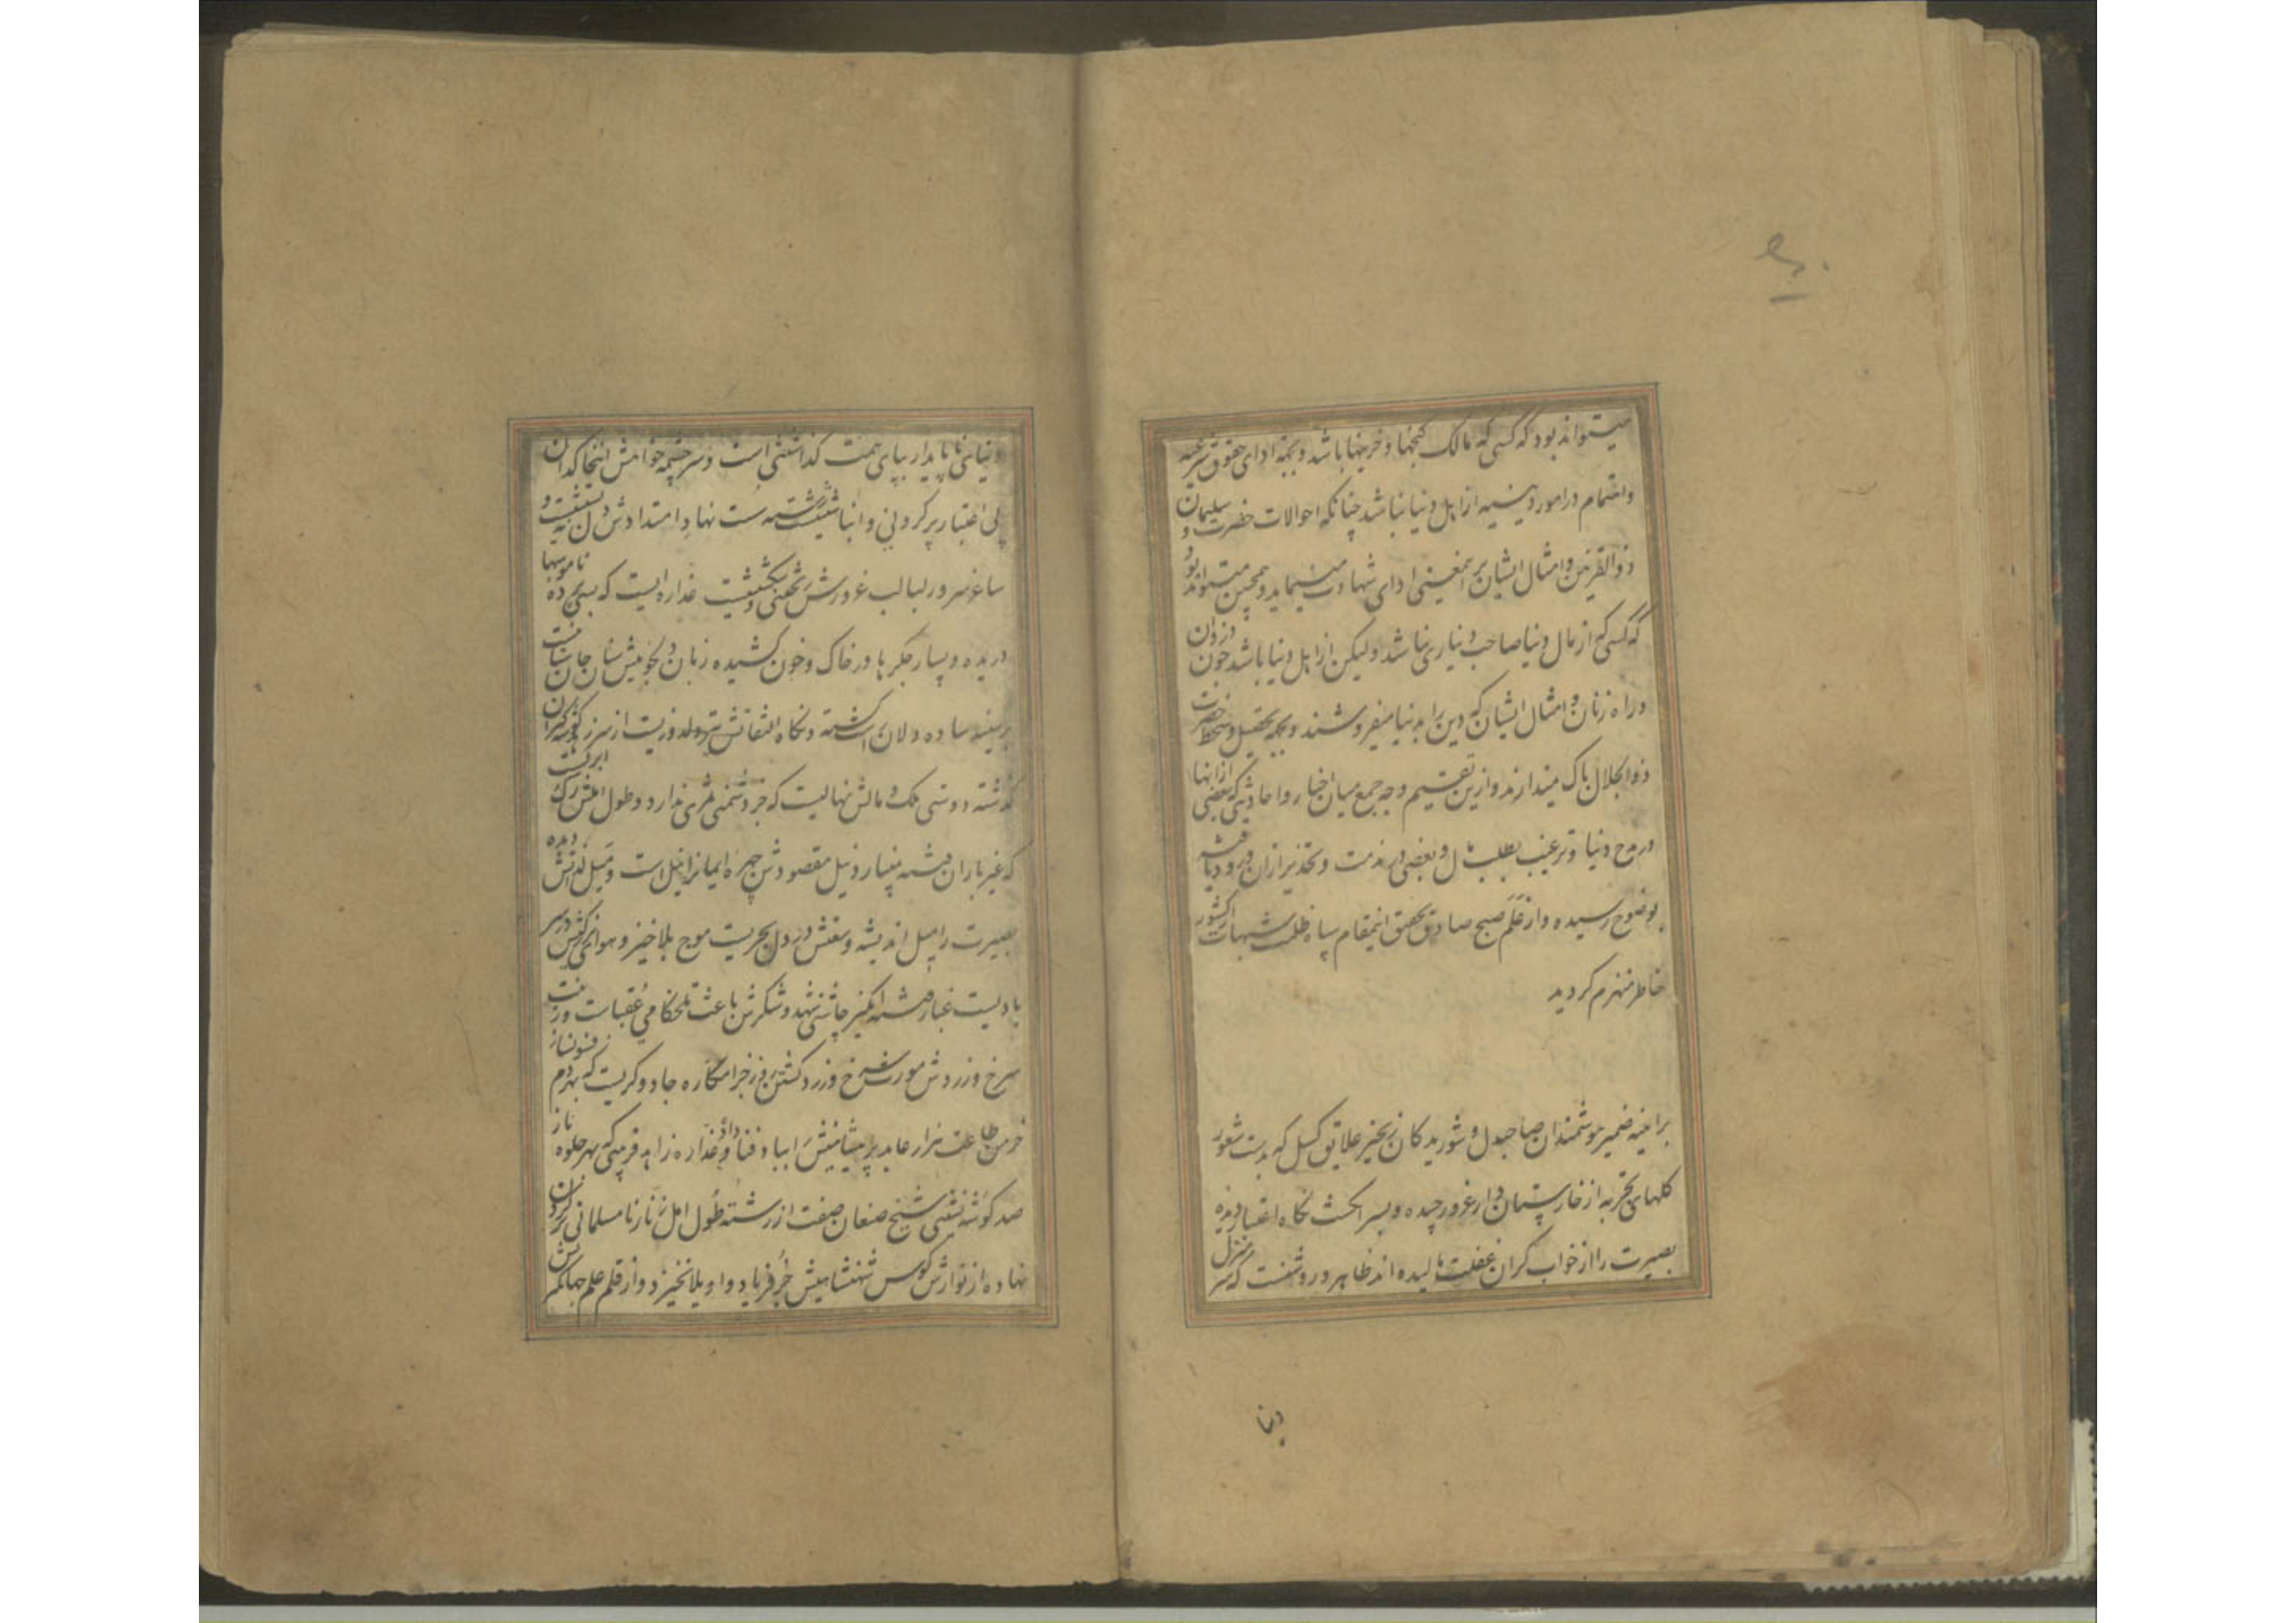 میتواند بود که کسی که مالک گنجها و خزینها باشد و بجهة ادای حقوق شرعیه
و اهتمام در امور دینیه از اهل دنیا نباشد چنانکه احوالات حضرت سلیمان و
ذوالقرنین و امثال ایشان بر اینمعنی ادای شهادت مینماید و همچنین میتواند بود
که کسی که از مال دنیا صاحب دیناری نباشد ولیکن از اهل دنیا باشد چون دزدان
و راه زنان و امثال ایشان که دین را بدنیا میفروشند و بجهة تحصیل سخط حضرت
ذوالجلال باک میندازند و ازین تقسیم وجه جمع میان اخبار و احادیثی که بعضی از انها
در مدح دنیا و ترغیب بطلب مال و بعضی در مذمت و تحذیر ازان ورود یافته
بوضوح رسیده و از عَلَم صبح صادق تحقیق اینمقام سپاه ظلمت شبهات از کشور
خاطر منهزم کردید
بر اینه ضمیر هوشمندان صاحبدل و شوریدکان زنجیر علایق کسل که بدست شعور
کلهای تجربه از خارستان دار غرور چیده و بسر انکشت نکاه اعتبار دیده
بصیرت را از خواب کران غفلت مالیده اند ظاهر و روشنست که سر منزل
دنیا
دنیای ناپایدار بپای همت کذاشتنی است و سرچشمه خواهش اینخاکدان
بی اعتبار پر کردنی و انباشتنی
ساغر سرور لبالب غرورش ریختنی و شکستنیست غداره ایست که بسی پرده ناموسها
دریده و بسا جکرها در خاک و خون کشیده زبان دلجوئیش سنان جان ستانست
بر سینه ساده دلان راست کشته و نکاه التفاتش
کذشته دوستی ملک و مالش نهالیست که جز دشمنی ثمری ندارد و طول املش رک ابریست
که غیر باران فتنه نبارد نیل مقصودش چهره ایمانرا نیل است و میل لذتش دیده
بصیرت را میل اندیشه وسعتش در دل بحریست موج بلاخیز و هوای کوس در سر
بادیست غبار فتنه انکیز چاشنی شهد و شکرش باعث تلخکامی عقبات و زینت
سرخ و زردش مورث سرخ و زرد کشتن روز جزا مکاره جادوکریست که بهر دم فسونساز
خرمن طاعت هزار عابد پریشانیش را بباد فنا داده و غداره زاهد فریبی که بهر جلوه ناز
صد کوشه نشین شیخ صنعان صفت از رشته طول امل زنار نا مسلمانی بر کردن
نهاده از نوازش کوس شهنشاهیش جز فریاد و اویلا نخیزد و از قلم علم جهانکیریش